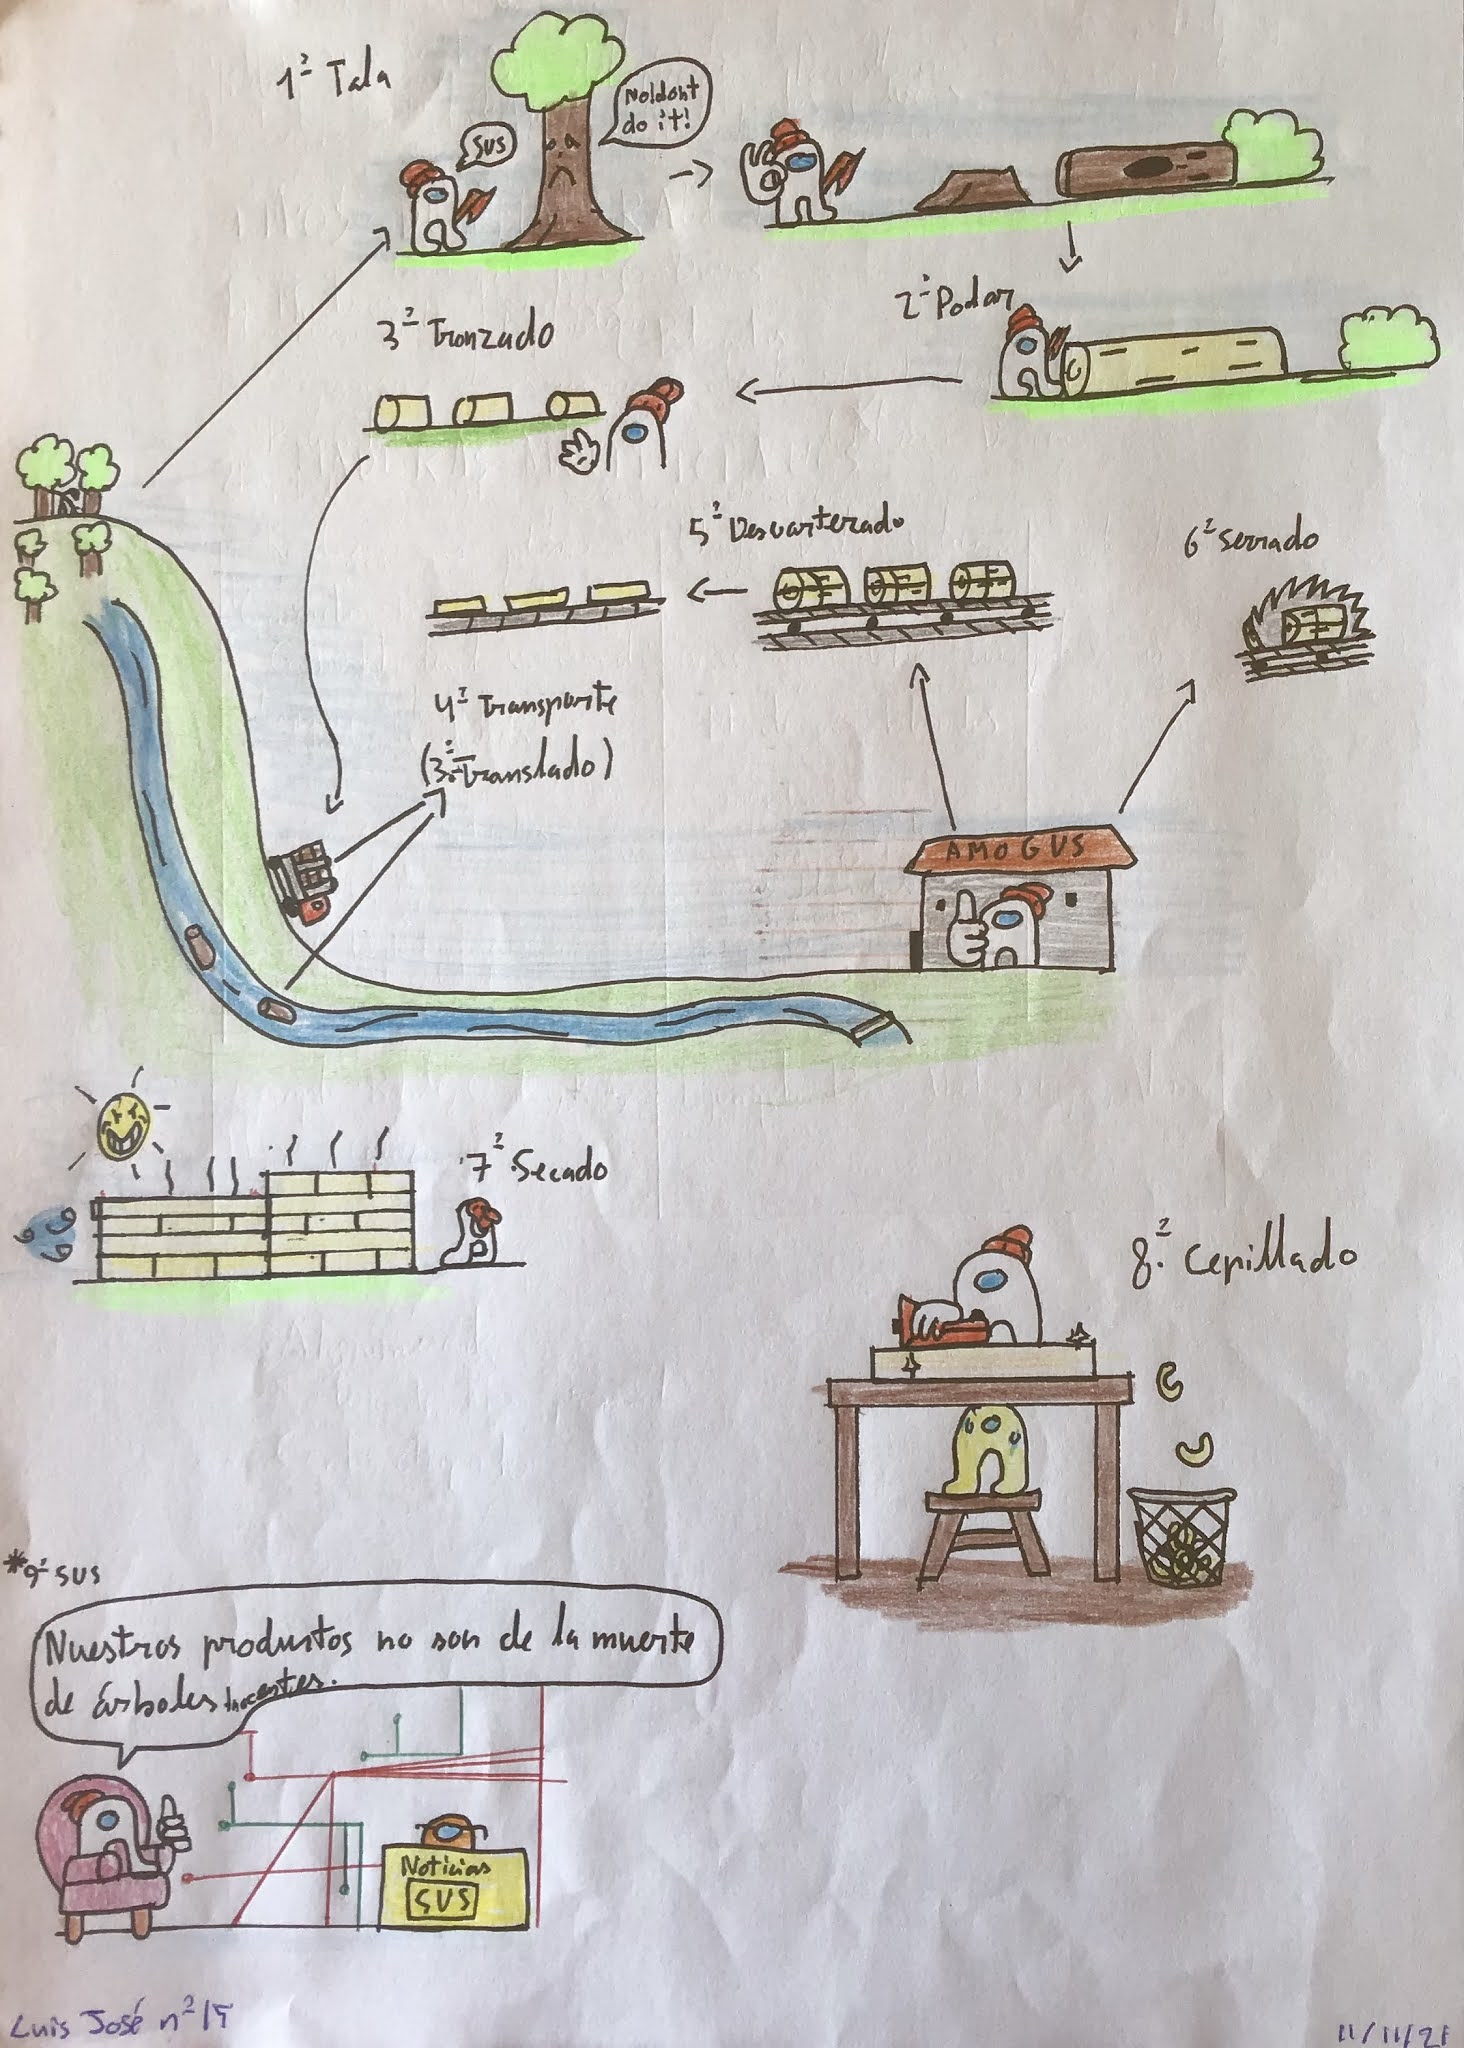 1º Tala
SUS
No!dont
do it!
2º Podar
3º Tronzado
5º Descuarterzado
6º Serrado
4º Transporte
(3º:Translado)
AMOGUS
7º Secado
8.º Cepillado
*9º SUS
Nuestros productos no son de la muerte
de árboles inocentes.
Noticias
SUS
Luis José nº15
11/11/21